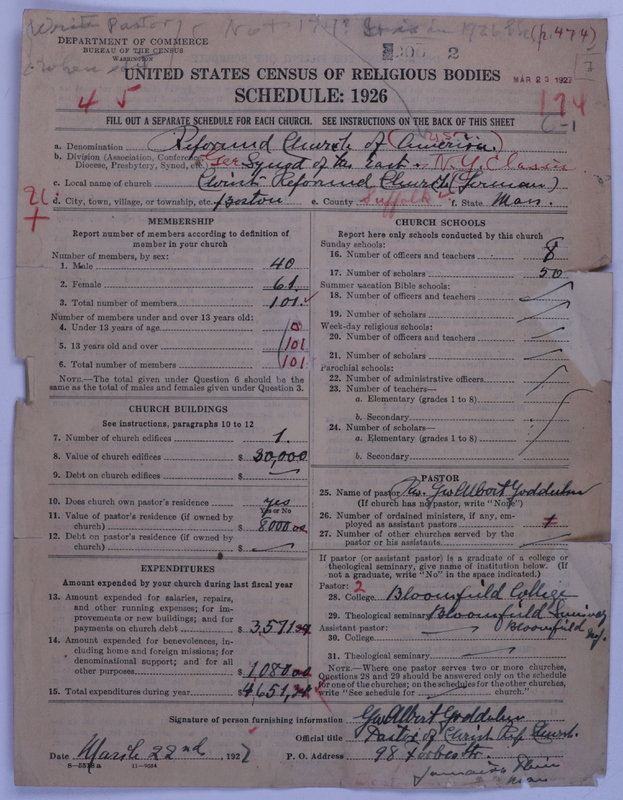 Write Pastor
Not 1919? in 1926 Bk (p.474)
DEPARTMENT OF COMMERCE
BUREAU OF THE CENSUS
WASHINGTON
2
MAR 23 1927
UNITED STATES CENSUS OF RELIGIOUS BODIES
SCHEDULE: 1926
4 5
174
6-1
FILL OUT A SEPARATE SCHEDULE FOR EACH CHURCH. SEE INSTRUCTIONS ON THE BACK OF THIS SHEET
a. Denomination Reformed Church of (U.S.) America.
b. Division (Association, Conference, Diocese, Presbytery, Synod, etc.) Ger Synod of the East. N.Y. Classis
c. Local name of church Christ Reformed Church (German)
d. City, town, village, or township, etc. Boston e. County Suffolk f. State Mass.
MEMBERSHIP
Report number of members according to definition of
member in your church
Number of members, by sex:
1. Male 40
2. Female 61
3. Total number of members 101
Number of members under and over 13 years old:
4. Under 13 years of age 0
5. 13 years old and over 101
6. Total number of members 101
NOTE.—The total given under Question 6 should be the
same as the total of males and females given under Question 3.
CHURCH BUILDINGS
See instructions, paragraphs 10 to 12
7. Number of church edifices 1.
8. Value of church edifices $ 30,000
9. Debt on church edifices $
10. Does church own pastor's residence yes
Yes or No
11. Value of pastor's residence (if owned by
church) $ 8000.00
12. Debt on pastor's residence (if owned by
church) $
EXPENDITURES
Amount expended by your church during last fiscal year
13. Amount expended for salaries, repairs,
and other running expenses; for im-
provements or new buildings; and for
payments on church debt $ 3,571
14. Amount expended for benevolences, in-
cluding home and foreign missions; for
denominational support; and for all
other purposes $ 1080.00
15. Total expenditures during year $ 4,651
CHURCH SCHOOLS
Report here only schools conducted by this church
Sunday schools:
16. Number of officers and teachers 8
17. Number of scholars 50
Summer vacation Bible schools:
18. Number of officers and teachers
19. Number of scholars
Week-day religious schools:
20. Number of officers and teachers
21. Number of scholars
Parochial schools:
22. Number of administrative officers
23. Number of teachers—
a. Elementary (grades 1 to 8)
b. Secondary
24. Number of scholars—
a. Elementary (grades 1 to 8)
b. Secondary
PASTOR
25. Name of pastor Rev. Albert
(If church has no pastor, write "None")
26. Number of ordained ministers, if any, em-
ployed as assistant pastors
27. Number of other churches served by the
pastor or his assistants
If pastor (or assistant pastor) is a graduate of a college or
theological seminary, give name of institution below. (If
not a graduate, write "No" in the space indicated.)
Pastor: 2
28. College Bloomfield College
29. Theological seminary Bloomfield Seminary
Assistant pastor: Bloomfield NJ.
30. College
31. Theological seminary
NOTE.—Where one pastor serves two or more churches,
Questions 28 and 29 should be answered only on the schedule
for one of the churches; on the schedules for the other churches,
write "See schedule for church."
Signature of person furnishing information Albert
Official title Pastor of Christ Ref. Church.
Date March 22nd, 1927 P. O. Address 98 Forbes St.
Jamaica Plain
Mass
11—9084